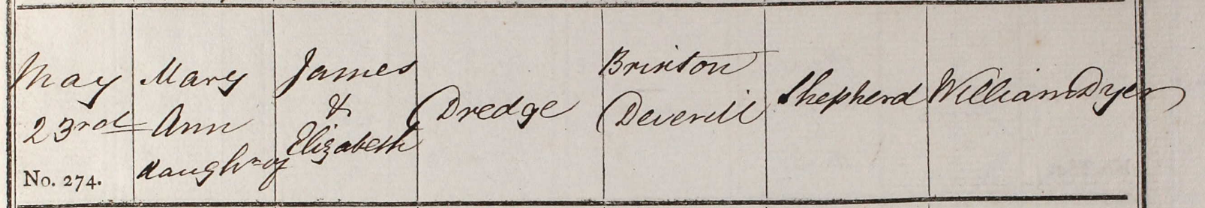 May
23rd
No. 274.
Mary
Ann
daughr of
James
&
Elizabeth
Dredge
Brixton
Deverill
Shepherd
William Dyer